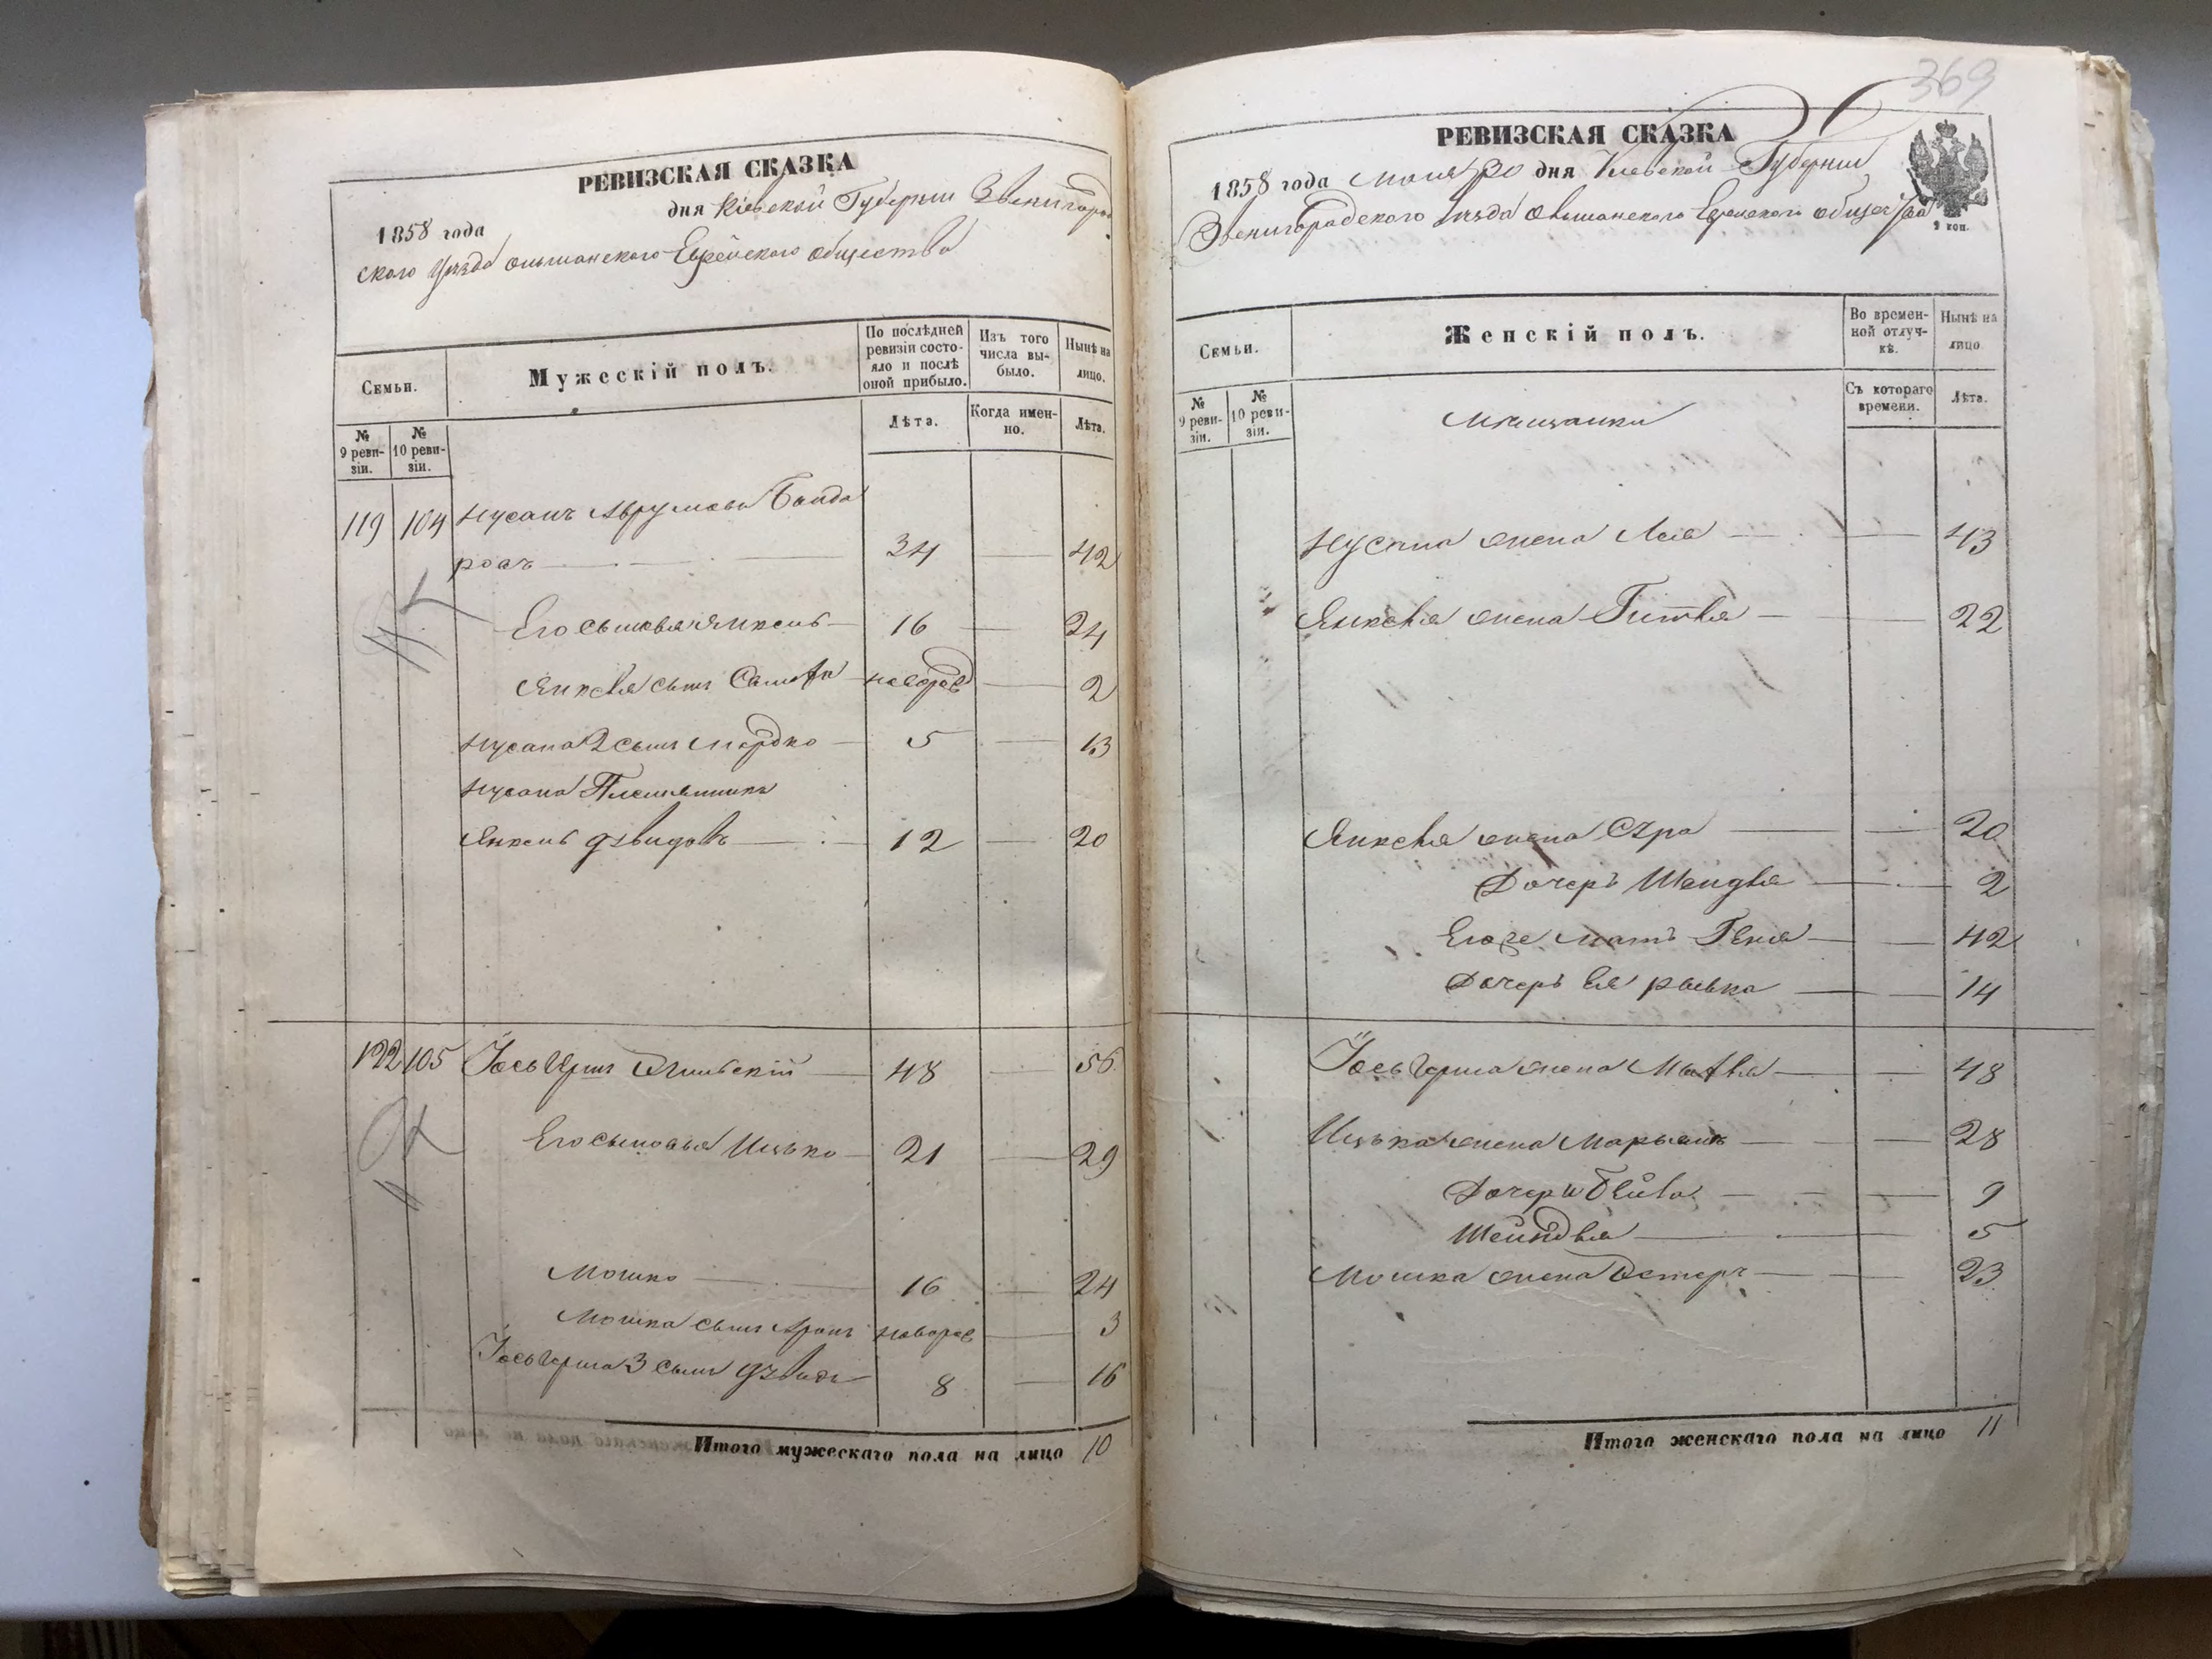 РЕВИЗСКАЯ СКАЗКА
1858 года дня Кіевской Губерніи Звенигород
ского Уѣзда ольшанского Еврейского общества
Семьи.
Мужескій полъ.
По послѣдней ревизіи состояло и послѣ оной прибыло.
Изъ того числа выбыло.
Нынѣ на лицо.
№ 9 ревизіи.
№ 10 ревизіи.
Лѣта.
Когда именно.
Лѣта.
119 104 Нусанъ Аврумовъ Бонда
роъ 34 42
Его сыновья Янкель 16 24
Янкеля сынъ новорож 2
Нусана 2 сынъ Мордко 5 13
Нусана Племянникъ
Янкель Дзвидовъ 12 20
122 105 Іось Гершъ 48 56
Его сыновья Ицько 21 29
Мошко 16 24
Мошка сынъ Аронъ новорож 3
Іось Герша 3 сынъ Дзвидъ 8 16
Итого мужескаго пола на лицо 10
369
РЕВИЗСКАЯ СКАЗКА
1858 года дня Кіевской Губерніи
Звенигородского Уѣзда Ольшанского Еврейского общества
2 коп.
Семьи.
Женскій полъ.
Во временной отлучкѣ.
Нынѣ на лицо
№ 9 ревизіи.
№ 10 ревизіи.
Мѣщанки
Съ котораго времени.
Лѣта.
Нусана жена Лея 43
Янкеля жена Гитля 22
Янкеля жена Сура 20
Дочерь Шендля 2
Егоже мать Геня 42
Дочерь Ея 14
Іось Герша жена 48
Ицька жена Марьямъ 28
Дочери Бейла 9
Шейндля 5
Мошка жена Эстеръ 23
Итого женскаго пола на лицо 11